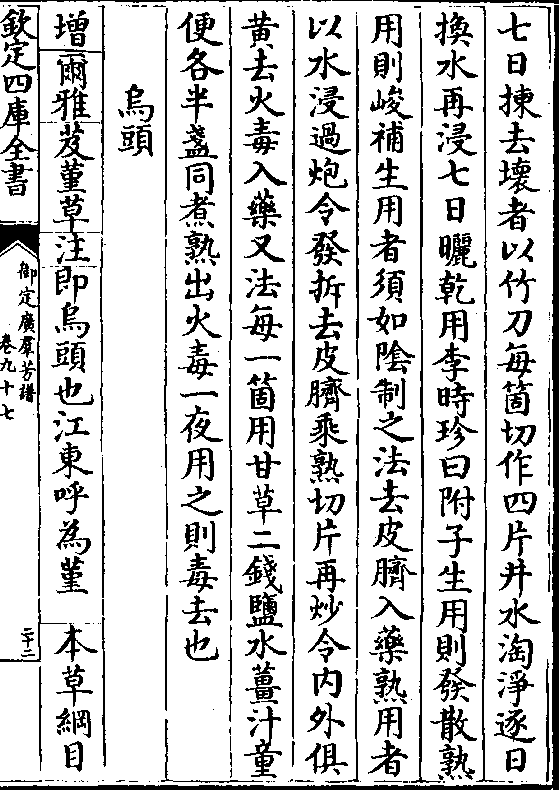 七日揀去壞者以竹刀每箇切作四片井水淘淨逐日
換水再浸七日曬乾用李時珍曰附子生用則發散熟
用則峻補生用者須如陰制之法去皮臍入藥熟用者
以水浸過炮令發拆去皮臍乘熟切片再炒令内外俱
黄去火毒入藥又法每一箇用甘草二錢鹽水薑汁童
便各半盞同煮熟出火毒一夜用之則毒去也
烏頭
增爾雅芨菫草注即烏頭也江東呼為菫 本草綱目
欽定四庫全書
御定廣羣芳譜
卷九十七
二十二